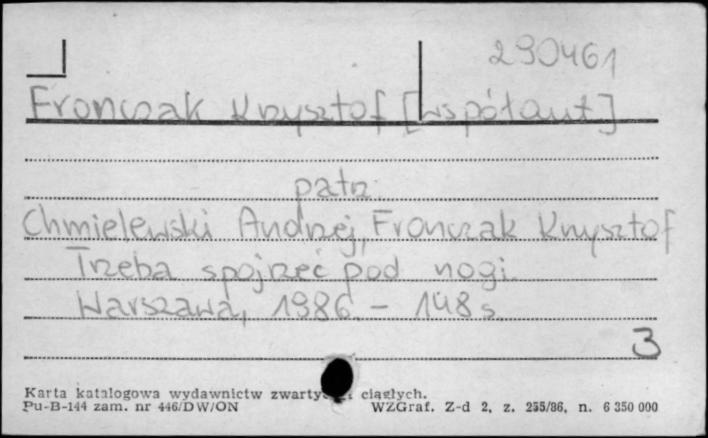 290461
Fronczak Krzysztof [współaut]
patrz:
Chmielewski Andrzej, Fronczak Krzysztof
Trzeba spojrzeć pod nogi.
Warszawa, 1986. - 148 s.
3
Karta katalogowa wydawnictw ciągłych.
Pu-B-144 zam. nr 446/DW/ON WZGraf. Z-d 2, z. 255/86, n. 6 350 000